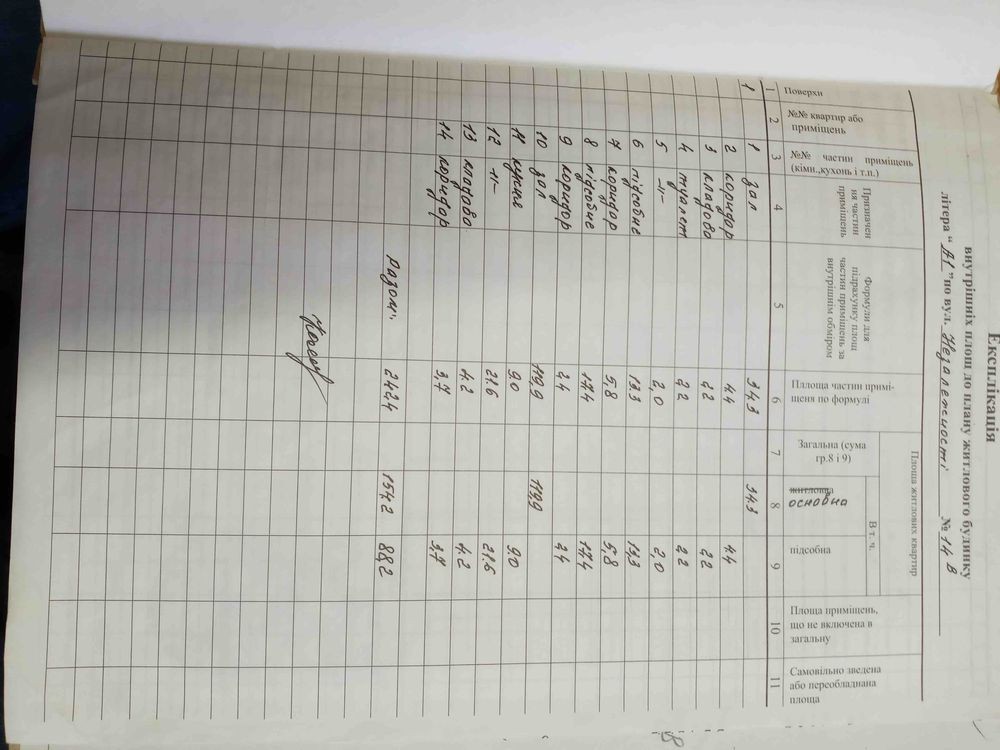 Експлікація
внутрішніх площ до плану житлового будинку
літера “ А1 ” по вул. Незалежності № 14 в
Поверхи
№№ квартир або приміщень
№№ частин приміщень (кімн.,кухонь і т.п.)
Призначен ня частин приміщень
Формули для підрахунку площ частин приміщень за внутрішнім обміром
Площа частин примі- щеня по формулі
Площа житлових квартир
Загальна (сума гр.8 і 9)
В т. ч.
житлова основна
підсобна
Площа приміщень, що не включена в загальну
Самовільно зведена або переобладнана площа
1 2 3 4 5 6 7 8 9 10 11
1 1 зал 34,3 34,3
2 коридор 4,4 4,4
3 кладова 2,2 2,2
4 туалет 2,2 2,2
5 -//- 2,0 2,0
6 підсобне 13,3 13,3
7 коридор 5,8 5,8
8 підсобне 17,4 17,4
9 коридор 2,4 2,4
10 зал 119,9 119,9
11 кухня 9,0 9,0
12 -//- 21.6 21.6
13 кладова 4.2 4.2
14 коридор 3,7 3,7
Разом: 242,4 154,2 88,2